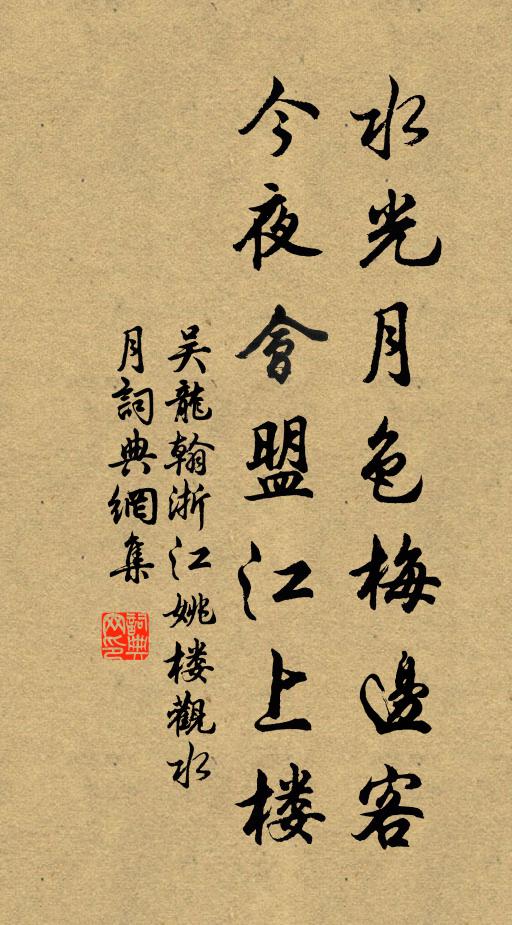 水光月色梅邊客
今夜會盟江上楼
吴龍翰浙江姚楼觀水
月詞典網集
詞典网印